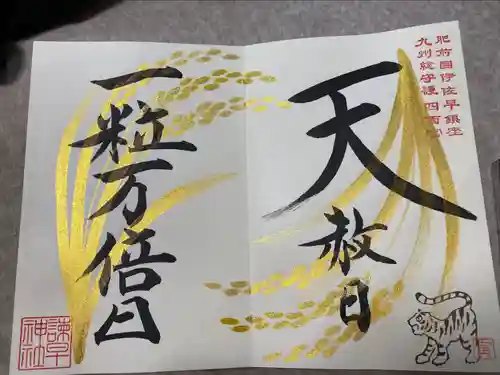 肥前國伊佐早鎮座
九州総守護四面宮
天赦日
一粒万倍日
諫早
神社